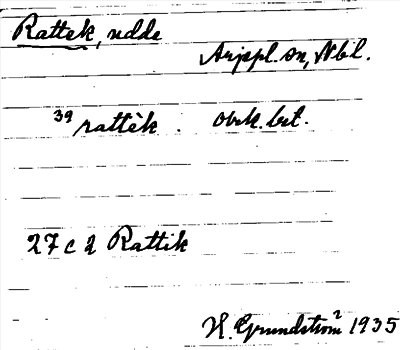 Rattek, udde
Arjepl. sn, Nbl.
39 rattēk . obek. bet.
27 c 2 Rattik
H. Grundström 2 1935